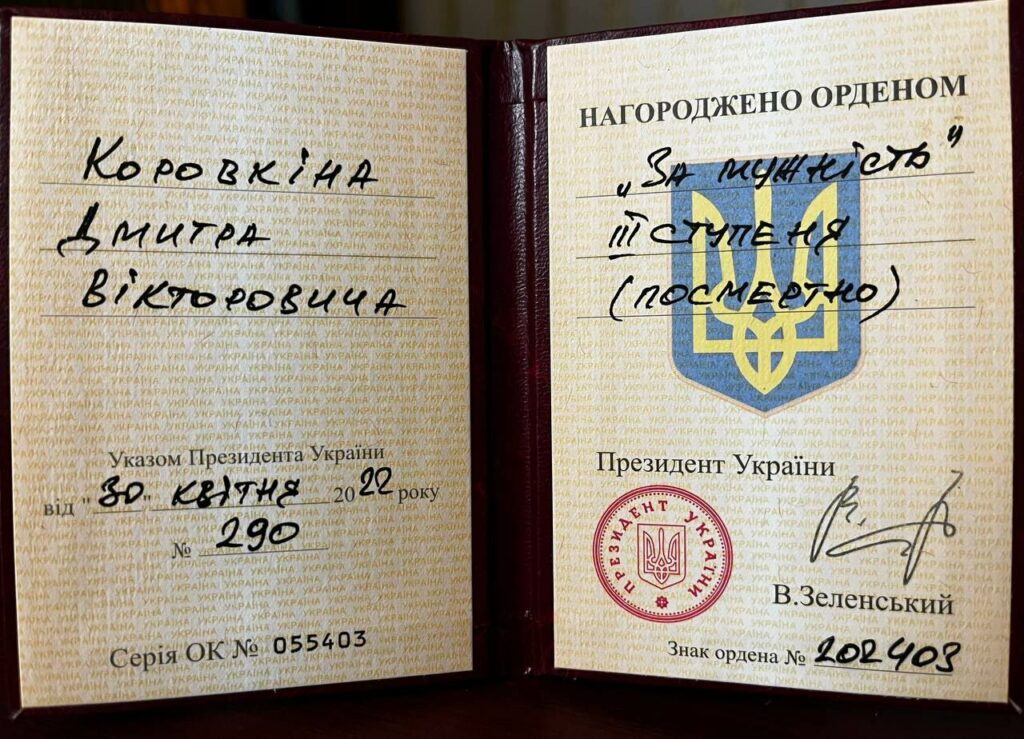 Коровкіна
Дмитра
Вікторовича
Указом Президента України
від "30" квітня 2022 року
№ 290
Серія ОК № 055403
НАГОРОДЖЕНО ОРДЕНОМ
„За мужність"
III ступеня
(посмертно)
Президент України
ПРЕЗИДЕНТ УКРАЇНИ
В.Зеленський
Знак ордена № 202403